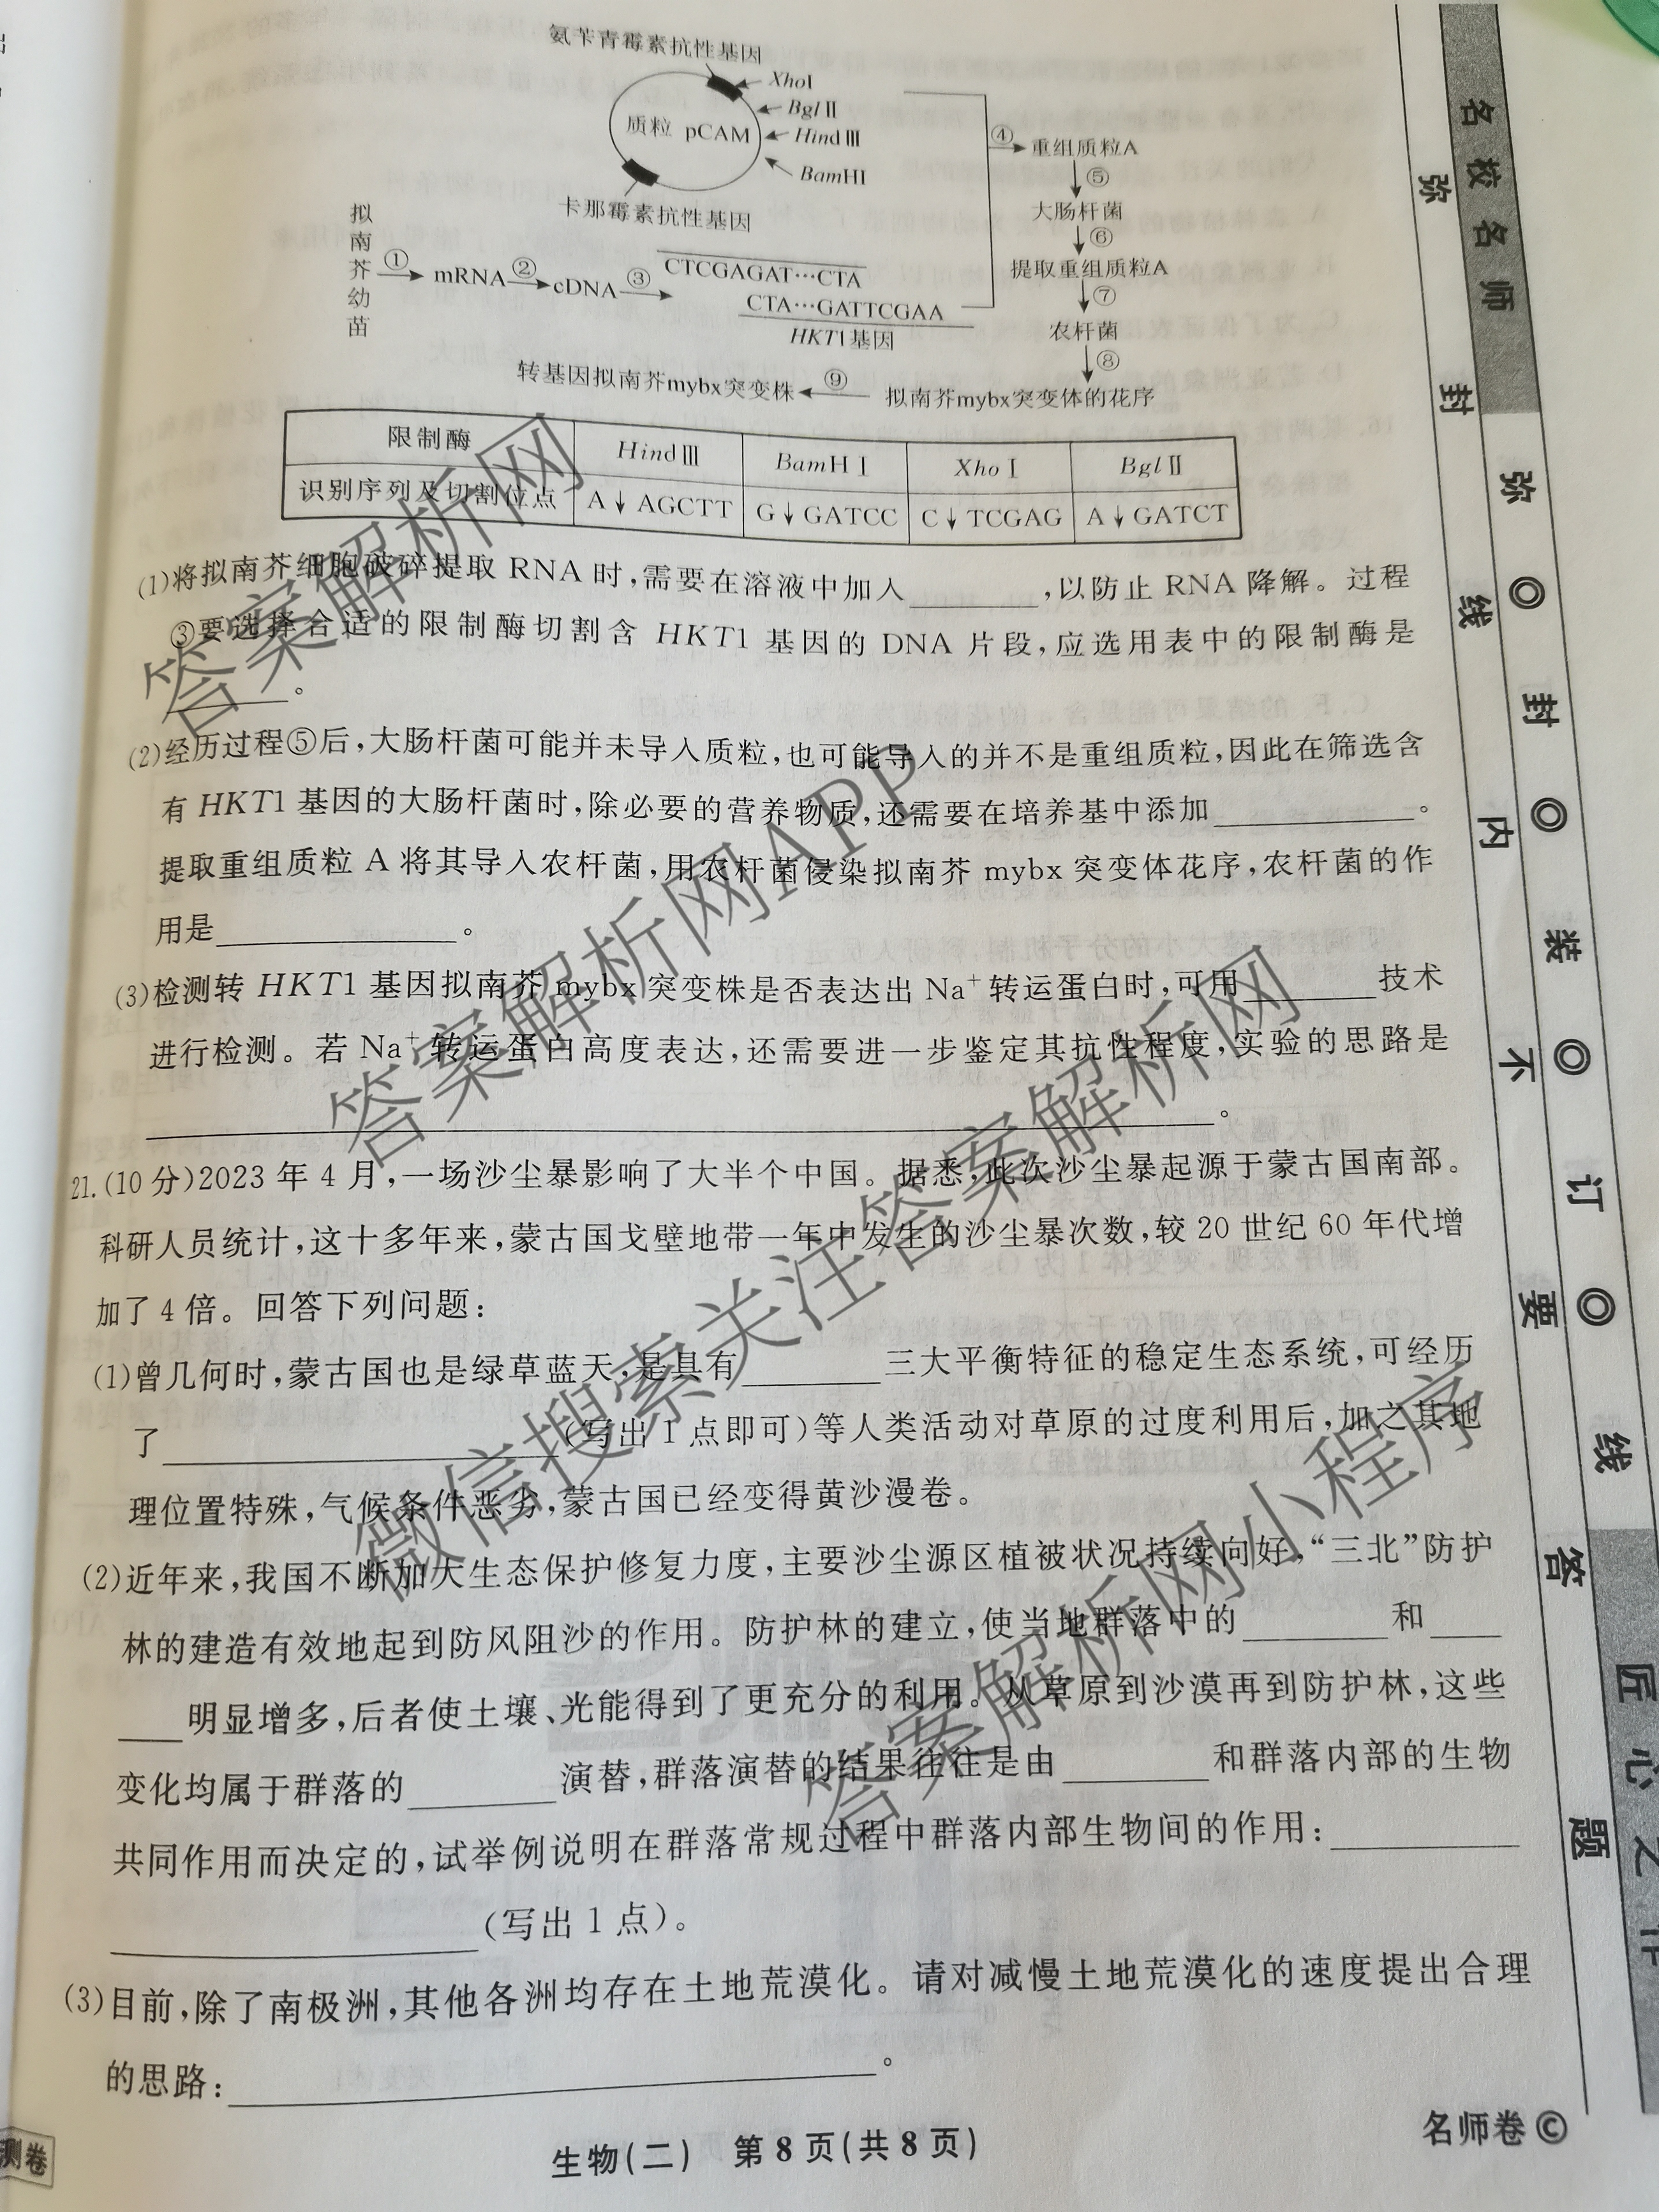 氨苄青霉素抗性基因
XhoⅠ
BglⅡ
HindⅢ
BamHⅠ
质粒 pCAM
卡那霉素抗性基因
④
重组质粒A
⑤
大肠杆菌
⑥
提取重组质粒A
⑦
农杆菌
⑧
拟南芥mybx突变体的花序
⑨
转基因拟南芥mybx突变株
拟南芥幼苗
① mRNA ② cDNA ③
CTCGAGAT…CTA
CTA…GATTCGAA
HKT1基因
限制酶 HindⅢ BamHⅠ XhoⅠ BglⅡ
识别序列及切割位点 A↓AGCTT G↓GATCC C↓TCGAG A↓GATCT
(1)将拟南芥细胞破碎提取 RNA 时,需要在溶液中加入________,以防止 RNA 降解。过程
③要选择合适的限制酶切割含 HKT1 基因的 DNA 片段,应选用表中的限制酶是
________。
(2)经历过程⑤后,大肠杆菌可能并未导入质粒,也可能导入的并不是重组质粒,因此在筛选含
有 HKT1 基因的大肠杆菌时,除必要的营养物质,还需要在培养基中添加____________。
提取重组质粒 A 将其导入农杆菌,用农杆菌侵染拟南芥 mybx 突变体花序,农杆菌的作
用是______________。
(3)检测转 HKT1 基因拟南芥 mybx 突变株是否表达出 Na⁺转运蛋白时,可用________技术
进行检测。若 Na⁺转运蛋白高度表达,还需要进一步鉴定其抗性程度,实验的思路是
________________________________。
21.(10 分)2023 年 4 月,一场沙尘暴影响了大半个中国。据悉,此次沙尘暴起源于蒙古国南部。
科研人员统计,这十多年来,蒙古国戈壁地带一年中发生的沙尘暴次数,较 20 世纪 60 年代增
加了 4 倍。回答下列问题:
(1)曾几何时,蒙古国也是绿草蓝天,是具有________三大平衡特征的稳定生态系统,可经历
了________________________(写出 1 点即可)等人类活动对草原的过度利用后,加之其地
理位置特殊,气候条件恶劣,蒙古国已经变得黄沙漫卷。
(2)近年来,我国不断加大生态保护修复力度,主要沙尘源区植被状况持续向好,“三北”防护
林的建造有效地起到防风阻沙的作用。防护林的建立,使当地群落中的________和____
____明显增多,后者使土壤、光能得到了更充分的利用。从草原到沙漠再到防护林,这些
变化均属于群落的________演替,群落演替的结果往往是由________和群落内部的生物
共同作用而决定的,试举例说明在群落常规过程中群落内部生物间的作用:__________
____________________(写出 1 点)。
(3)目前,除了南极洲,其他各洲均存在土地荒漠化。请对减慢土地荒漠化的速度提出合理
的思路:________________________________。
生物(二) 第 8 页(共 8 页)
名师卷©
测卷
名校名师
匠心之作
弥封线内不要答题
弥◎封◎装◎订◎线
答案解析网
答案解析网APP
微信搜索关注答案解析网
答案解析网小程序